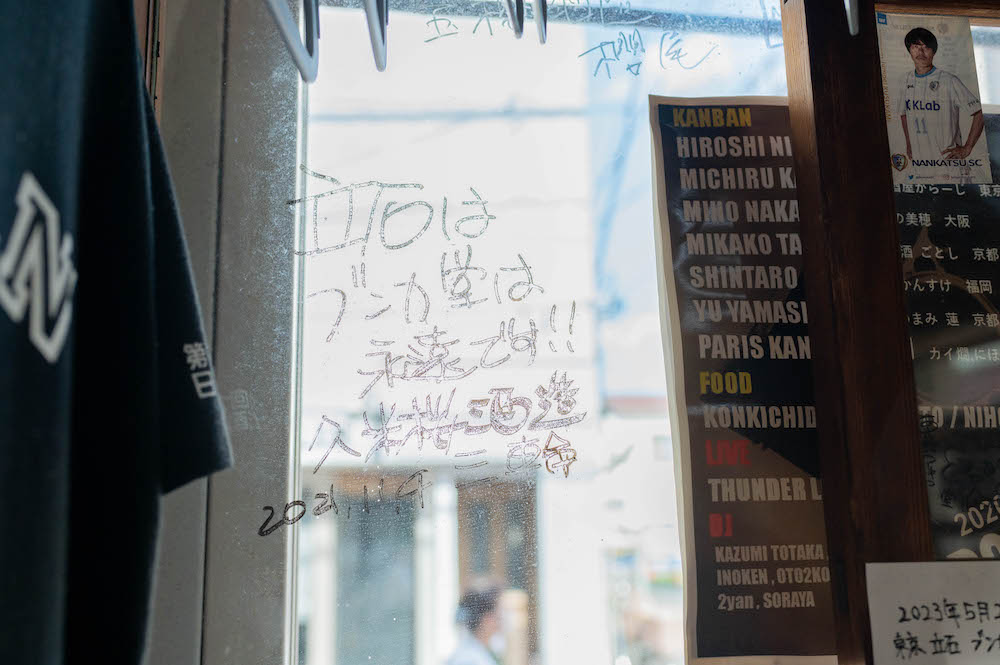 立石は
ブンカ堂は
永遠です!!
久米桜酒造
三輪
2021.11.9
KANBAN
HIROSHI NI
MICHIRU K
MIHO NAKA
MIKAKO TA
SHINTARO
YU YAMASI
PARIS KAN
FOOD
KONKICHID
LIVE
THUNDER L
DJ
KAZUMI TOTAKA
INOKEN , OTO2KO
2yan , SORAYA
KLab
11
NANKATSU SC
酒屋からーし 東京
の美穂 大阪
酒 ごとし 京都
かんすけ 福岡
まみ 蓮 京都
カイ燗 にほ
O / NIH
202
2023年5月2
東京 立石 ブン
N